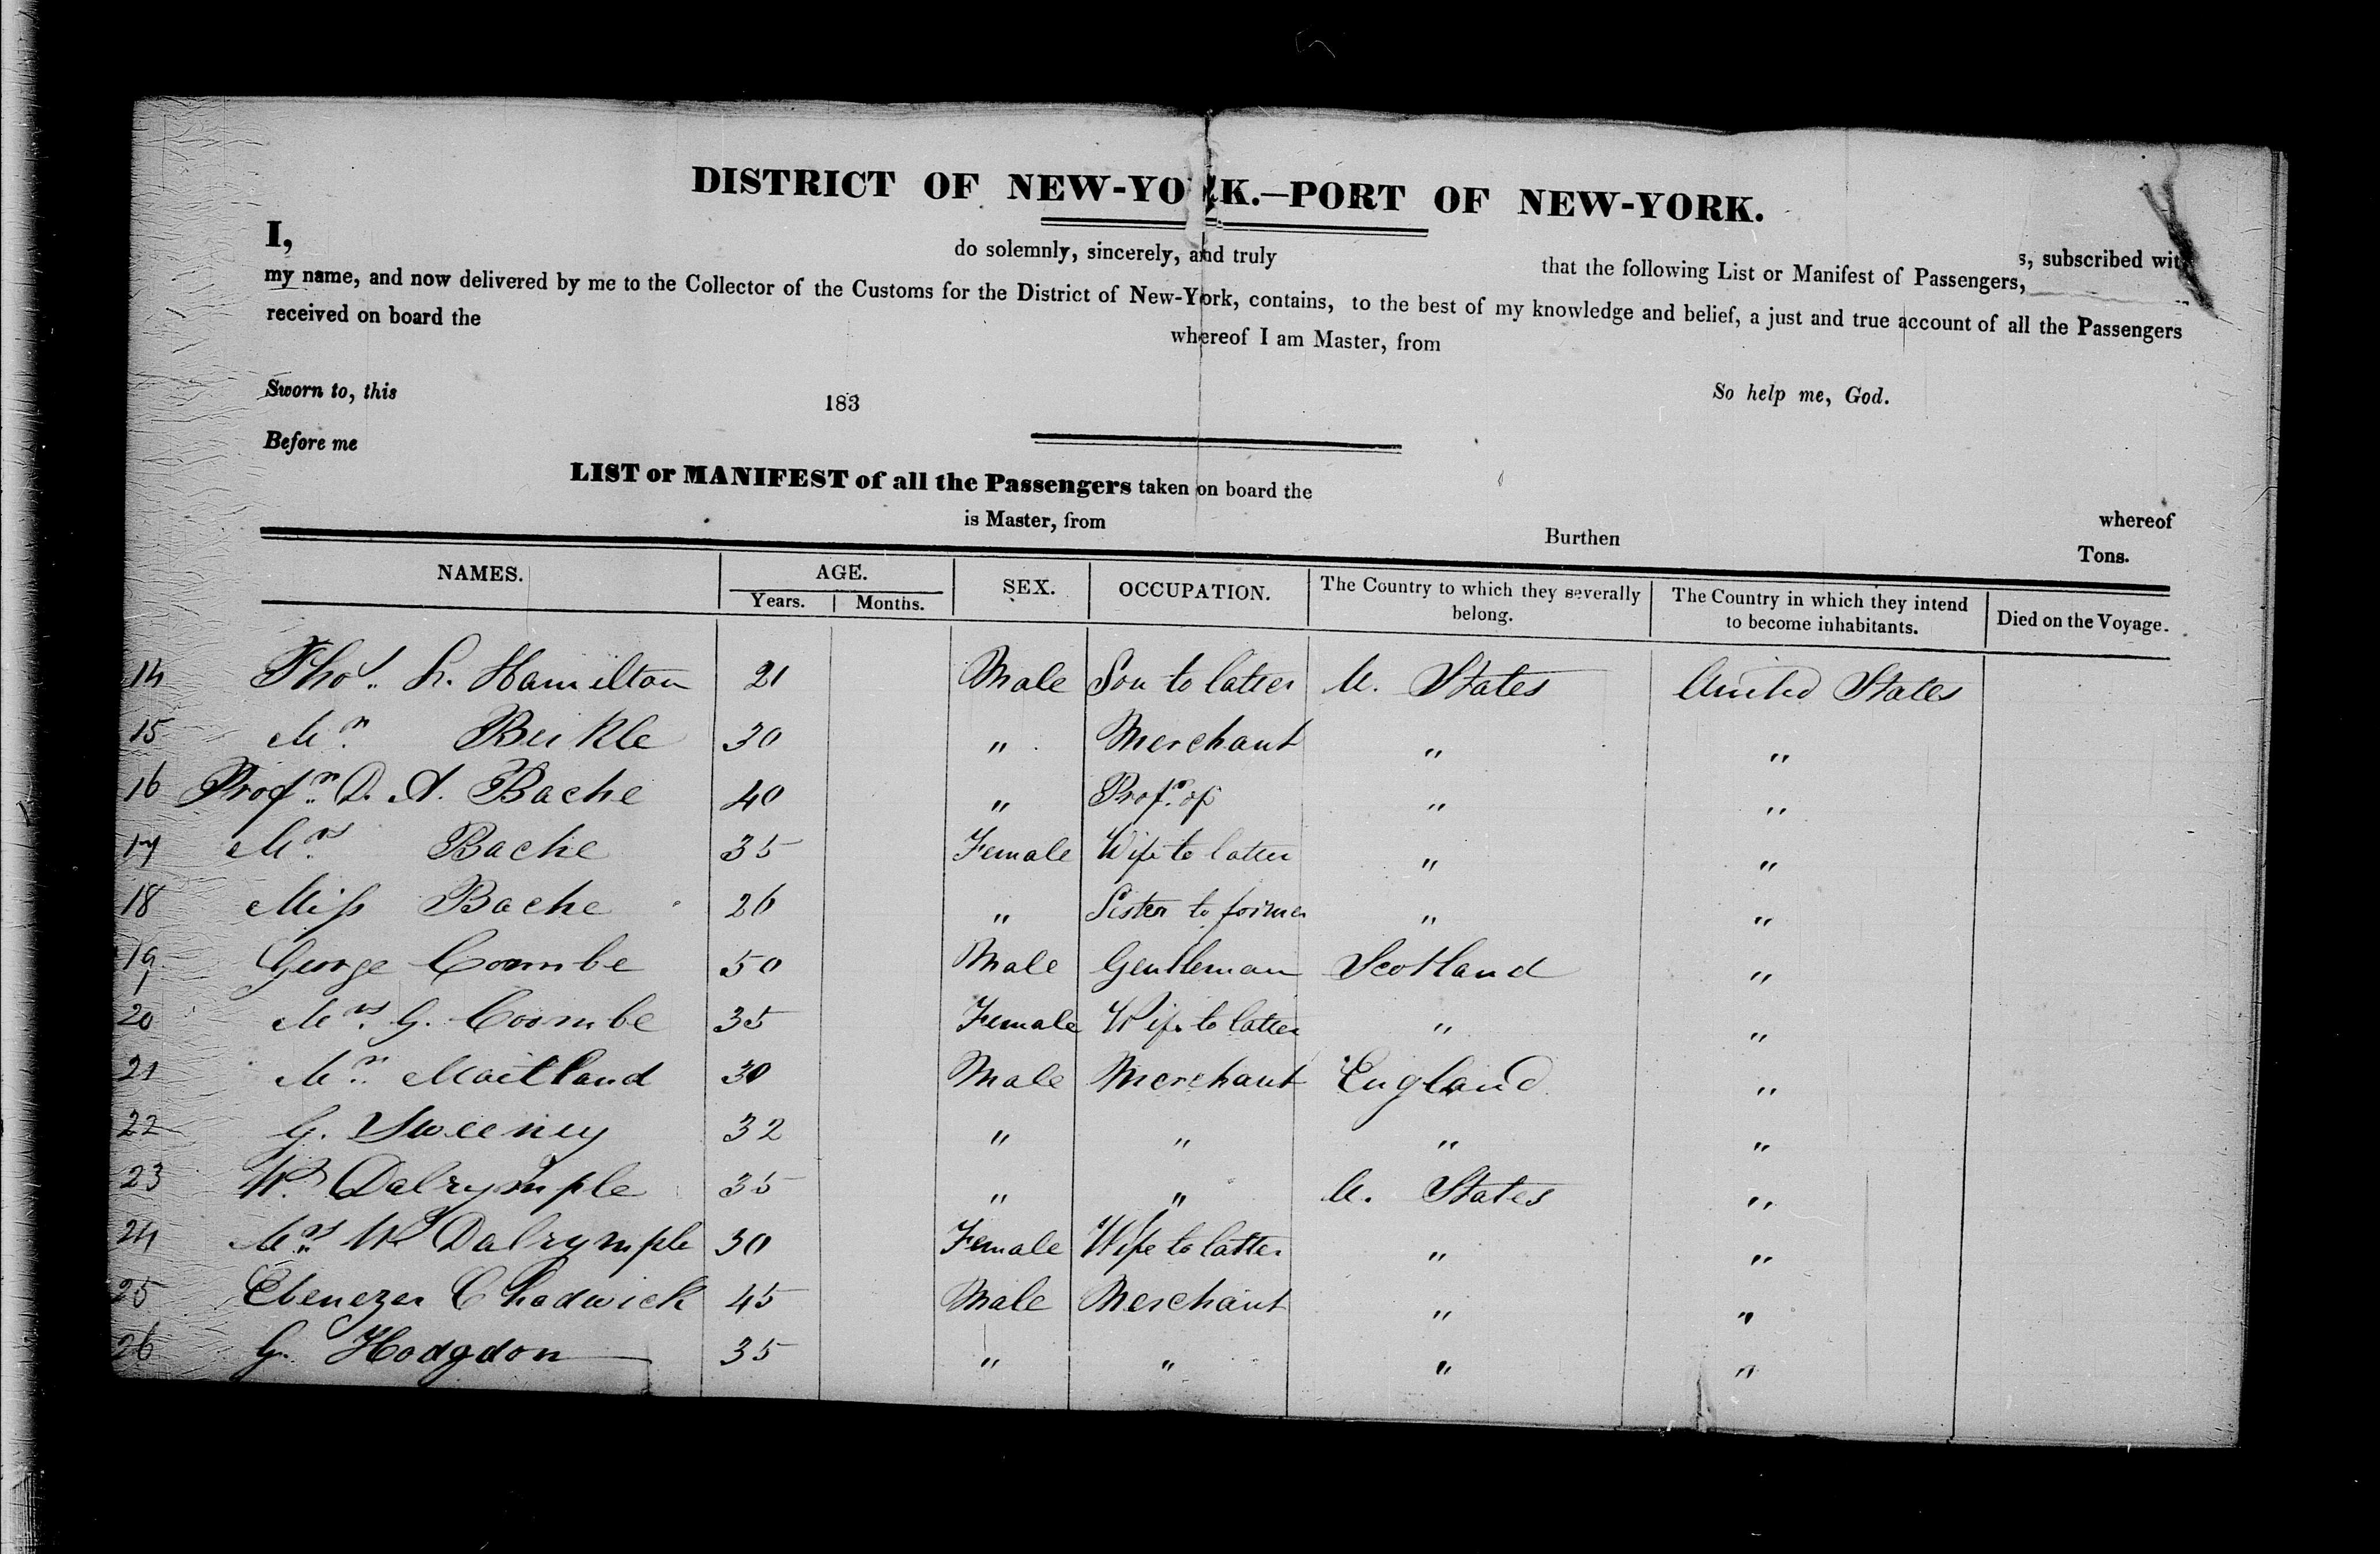 DISTRICT OF NEW-YORK.—PORT OF NEW-YORK.
I, do solemnly, sincerely, and truly that the following List or Manifest of Passengers, s, subscribed wit
my name, and now delivered by me to the Collector of the Customs for the District of New-York, contains, to the best of my knowledge and belief, a just and true account of all the Passengers
received on board the whereof I am Master, from
So help me, God.
Sworn to, this 183
Before me
LIST or MANIFEST of all the Passengers taken on board the whereof
is Master, from Burthen Tons.
NAMES. AGE. SEX. OCCUPATION. The Country to which they severally belong. The Country in which they intend to become inhabitants. Died on the Voyage.
Years. Months.
14 Thos. L. Hamilton 21 Male Son to latter U. States United States
15 Mr. Beikle 30 " Merchant " "
16 Profr. D. A. Bache 40 " Profr. of " "
17 Mrs. Bache 35 Female Wife to latter " "
18 Miss Bache 26 " Sister to former " "
19 George Coombe 50 Male Gentleman Scotland "
20 Mrs. G. Coombe 35 Female Wife to latter " "
21 Mr. Maitland 30 Male Merchant England "
22 G. Sweeney 32 " " " "
23 W. Dalrymple 35 " " U. States "
24 Mrs. W Dalrymple 30 Female Wife to latter " "
25 Ebenezer Chadwick 45 Male Merchant " "
26 G. Hodgdon 35 " " " "